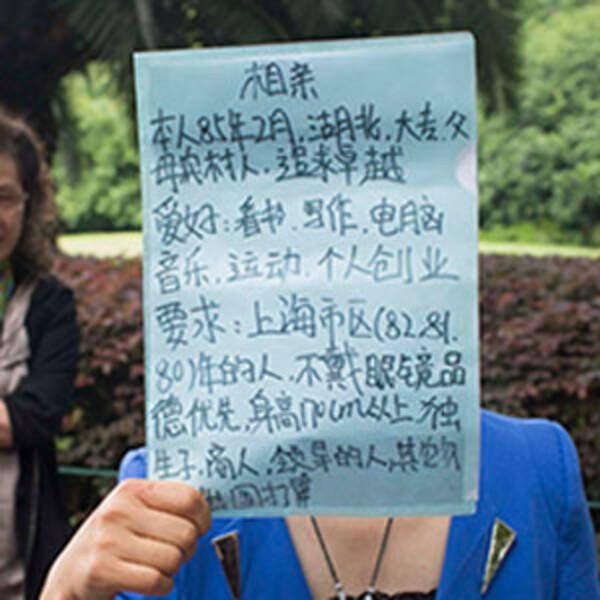 相亲
本人85年2月,湖北,大专.父
母农村人,追求卓越
爱好:看书.写作.电脑
音乐.运动.个人创业
要求:上海市区(82.81.
80)年的人.不戴眼镜品
德优先,身高170cm以上独
生子.商人,
的人,其
出国打算